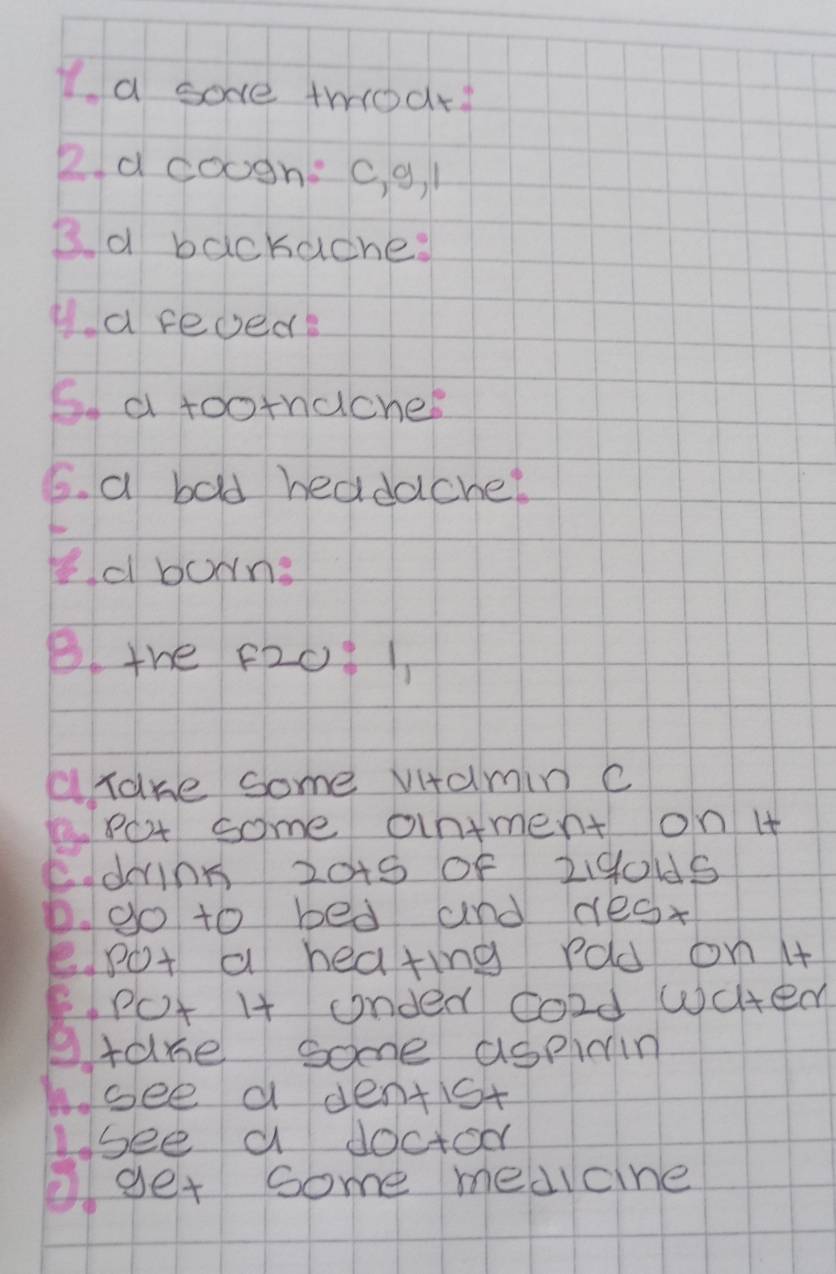 1. a sore throat:
2. a cough: c, g, i
3. a backache:
4. a fever:
5. a toothache:
6. a bad headache:
7. a burn:
8. the flu: i,
a. Take some vitamin c
B. Put some ointment on it
C. drink lots of liquids
D. go to bed and rest
e. put a heating pad on it
F. put it under cold water
g. take some aspirin
h. see a dentist
i. see a doctor
J. get some medicine